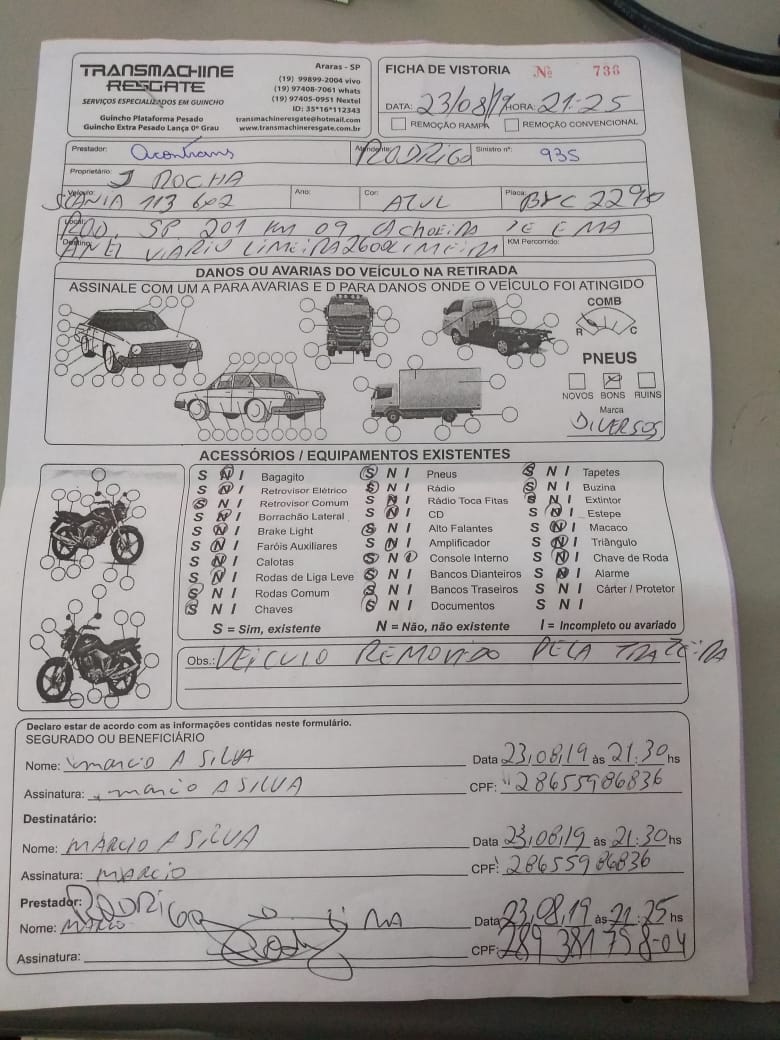 TRANSMACHINE
RESGATE
SERVIÇOS ESPECIALIZADOS EM GUINCHO
Guincho Plataforma Pesado
Guincho Extra Pesado Lança 0º Grau
Araras - SP
(19) 99899-2004 vivo
(19) 97408-7061 whats
(19) 97405-0951 Nextel
ID: 35*16*112343
transmachineresgate@hotmail.com
www.transmachineresgate.com.br
FICHA DE VISTORIA Nº 736
DATA: 23/08/19 HORA: 21:25
REMOÇÃO RAMPA REMOÇÃO CONVENCIONAL
Prestador: acontrans Atendente: RODRIGO Sinistro nº: 935
Proprietário: J ROCHA
Veículo: SCANIA 113 602 Ano: Cor: AZUL Placa: BYC 2290
Local: ROD. SP 201 KM 09 CACHOEIRA DE EMA
Destino: ANEL VIARIO LIMEIRA 2600 LIMEIRA KM Percorrido:
DANOS OU AVARIAS DO VEÍCULO NA RETIRADA
ASSINALE COM UM A PARA AVARIAS E D PARA DANOS ONDE O VEÍCULO FOI ATINGIDO
COMB
R C
PNEUS
NOVOS BONS RUINS
Marca
DIVERSOS
ACESSÓRIOS / EQUIPAMENTOS EXISTENTES
S N I Bagagito S N I Pneus S N I Tapetes
S N I Retrovisor Elétrico S N I Rádio S N I Buzina
S N I Retrovisor Comum S N I Rádio Toca Fitas S N I Extintor
S N I Borrachão Lateral S N I CD S N I Estepe
S N I Brake Light S N I Alto Falantes S N I Macaco
S N I Faróis Auxiliares S N I Amplificador S N I Triângulo
S N I Calotas S N I Console Interno S N I Chave de Roda
S N I Rodas de Liga Leve S N I Bancos Dianteiros S N I Alarme
S N I Rodas Comum S N I Bancos Traseiros S N I Cárter / Protetor
S N I Chaves S N I Documentos S N I
S = Sim, existente N = Não, não existente I = Incompleto ou avariado
Obs.: VEICULO REMOVIDO PELA TRAZEIRA
Declaro estar de acordo com as informações contidas neste formulário.
SEGURADO OU BENEFICIÁRIO
Nome: marcio A SILVA Data 23,08,19 às 21:30 hs
Assinatura: marcio A SILVA CPF: 28655986836
Destinatário:
Nome: MARCIO A SILVA Data 23,08,19 às 21:30 hs
Assinatura: MARCIO CPF: 28655986836
Prestador:
Nome: MARCIO RODRIGO Data 23,08,19 às 21:25 hs
Assinatura: CPF: 289 381 758-04